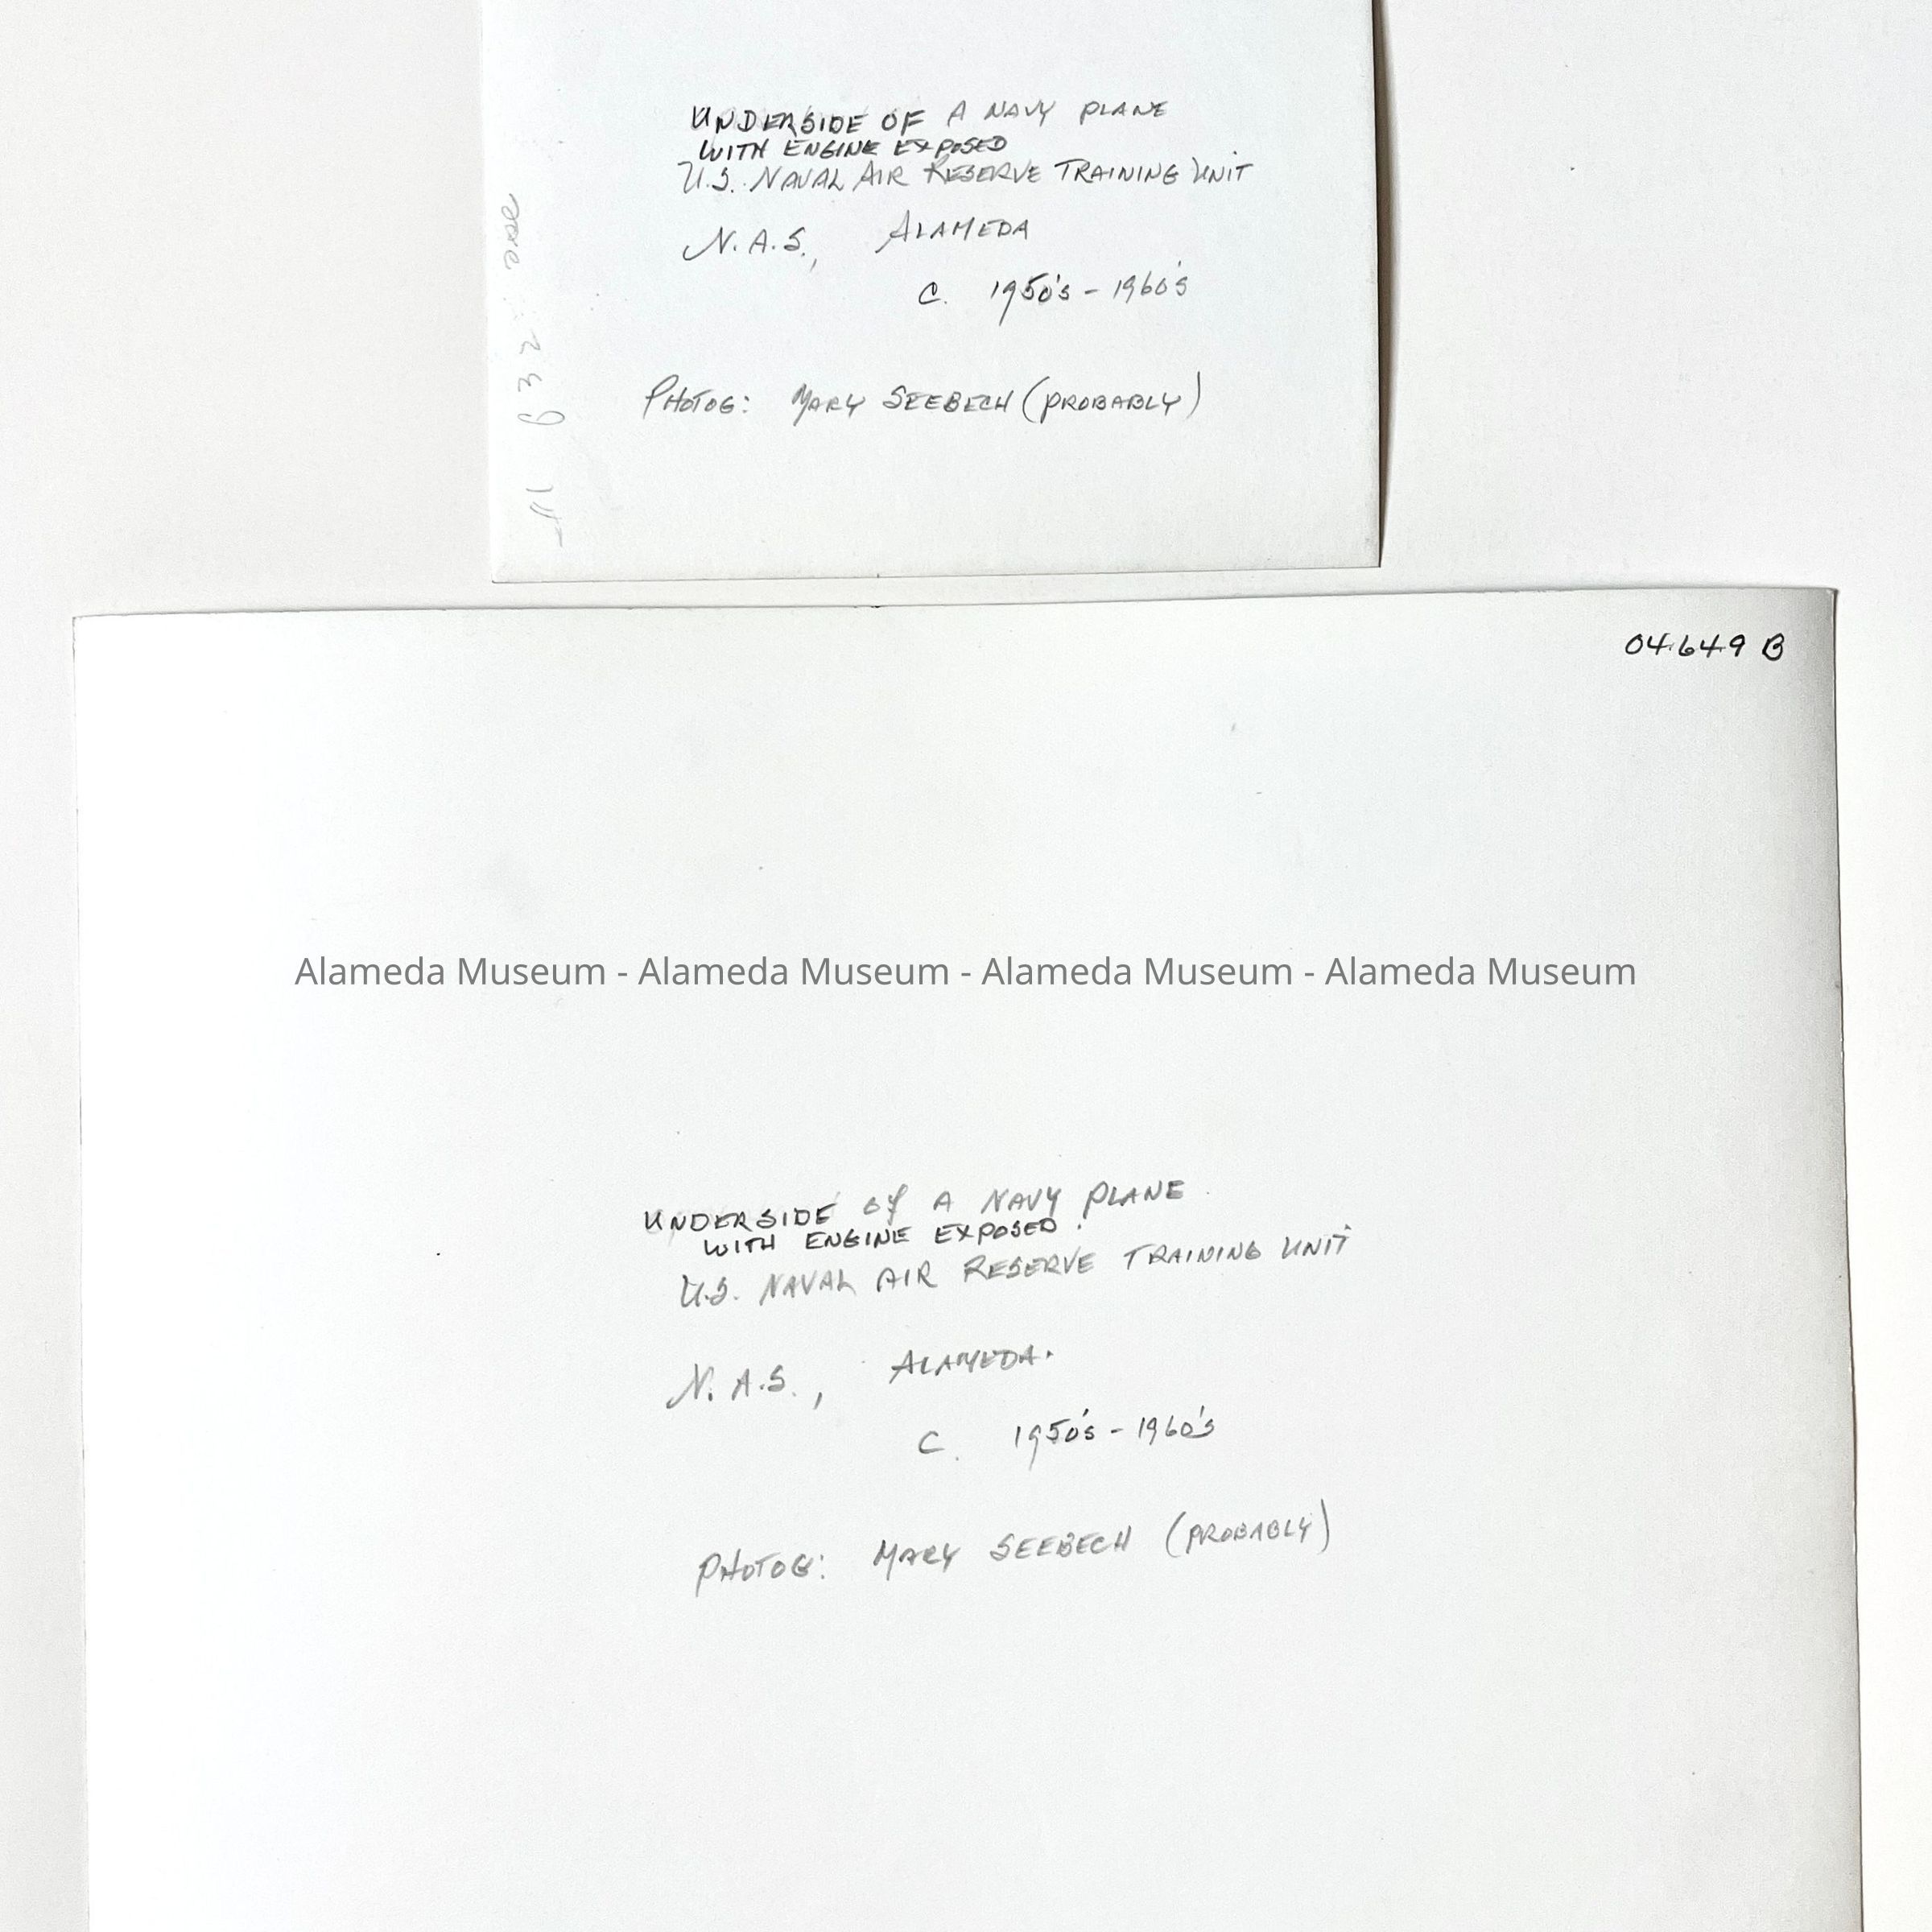 UNDERSIDE OF A NAVY PLANE
WITH ENGINE EXPOSED
U.S. NAVAL AIR RESERVE TRAINING UNIT
N.A.S., ALAMEDA
C. 1950's - 1960's
PHOTOG: MARY SEEBECH (PROBABLY)
04.649 B
Alameda Museum - Alameda Museum - Alameda Museum - Alameda Museum
UNDERSIDE Of A NAVY PLANE
WITH ENGINE EXPOSED.
U.S. NAVAL AIR RESERVE TRAINING UNIT
N.A.S., ALAMEDA.
C. 1950's - 1960's
PHOTOG: MARY SEEBECH (PROBABLY)